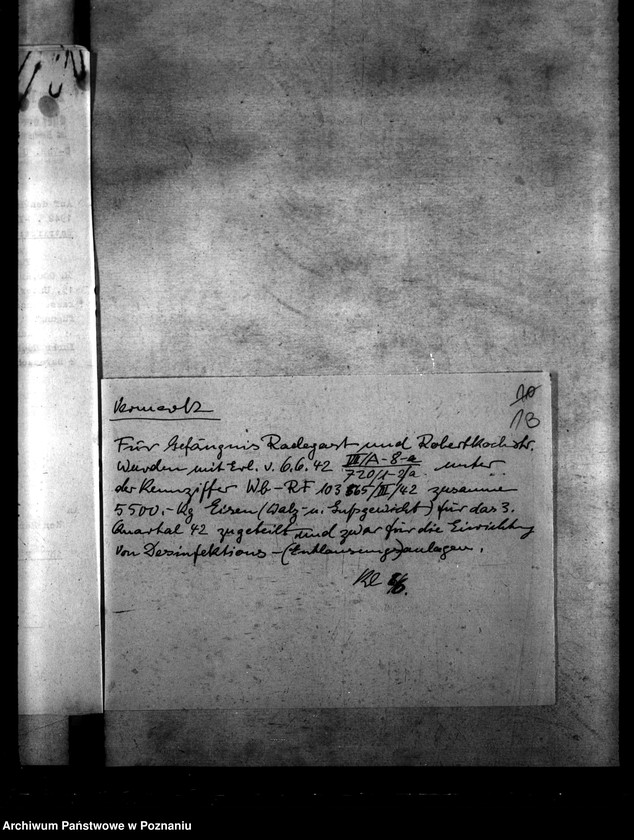 10
13
Vermerk
Für Gefängnis Radegast und Robertkochstr.
wurden mit Erl. v. 6.6.42 VI/A-8-a / 720/1-2/a unter
der Kennziffer Wb-RF 103 865/III/42 zusamme
5500.- kg Eisen (Walz- u. Gußgewicht) für das 3.
Quartal 42 zugeteilt und zwar für die Einrichtung
von Desinfektions-(Entlausungs)anlagen.
Archiwum Państwowe w Poznaniu